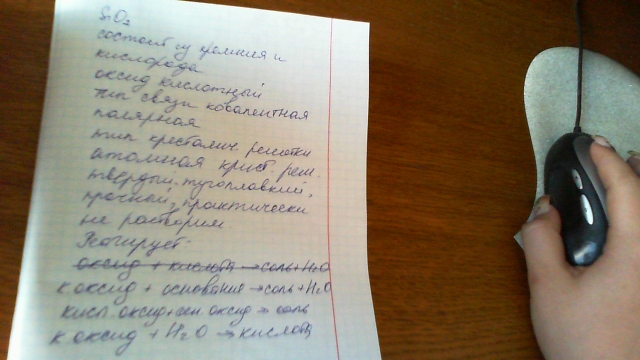 SiO2
состоит из кремния и
кислорода
оксид кислотный
тип связи ковалентная
полярная
тип кресталич. решотки
атомная крист. реш.
твёрдый, тугоплавкий,
прочный, практически
не растворим
Реагирует:
оксид + кислота → соль + H2O
к оксид + основание → соль + H2O
кисл. оксид + осн оксид → соль
к оксид + H2O → кислота